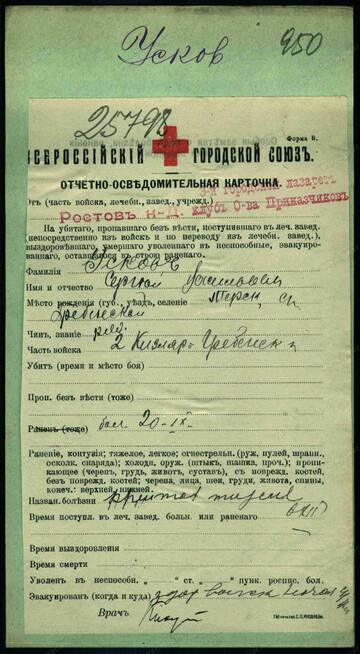 Усков 950
25798
Форма В.
ВСЕРОССІЙСКІЙ ГОРОДСКОЙ СОЮЗЪ.
ОТЧЕТНО-ОСВѢДОМИТЕЛЬНАЯ КАРТОЧКА.
3-й городской лазаретъ
Отъ (часть войска, лечебн., завед., учрежд.)
Ростовъ н-Д. клубъ О-ва Приказчиковъ
На убитаго, пропавшаго безъ вѣсти, поступившаго въ леч. завед.
(непосредственно изъ войскъ и по переводу изъ лечебн. завед.),
выздоровѣвшаго, умершаго уволеннаго въ неспособные, эвакуиро-
ваннаго, оставшагося въ строю раненаго.
Фамилія Усковъ
Имя и отчество Сергѣй
Мѣсто рожденія (губ., уѣздъ, селеніе Терск.
Чинъ, званіе ряд.
Часть войска 2 Кизляро Гребенск
Убитъ (время и мѣсто боя)
Проп. безъ вѣсти (тоже)
Раненъ (тоже) бол 20-IX
Раненіе, контузія; тяжелое, легкое; огнестрѣльн. (руж. пулей, шрапн.,
осколк. снаряда); холодн. оруж. (штыкъ, шашка, проч.); прони-
кающее (черепъ, грудь, животъ, суставъ), съ поврежд. костей,
безъ поврежд. костей; черепа, лица, шеи, груди, живота, спины,
конеч.: верхней, нижней.
Назван. болѣзни
Время поступл. въ леч. завед. больн. или раненаго
Время выздоровленія
Время смерти
Уволенъ въ неспособн. „ ст. „ пунк. роспис. бол.
Эвакуированъ (когда и куда)
Врачъ